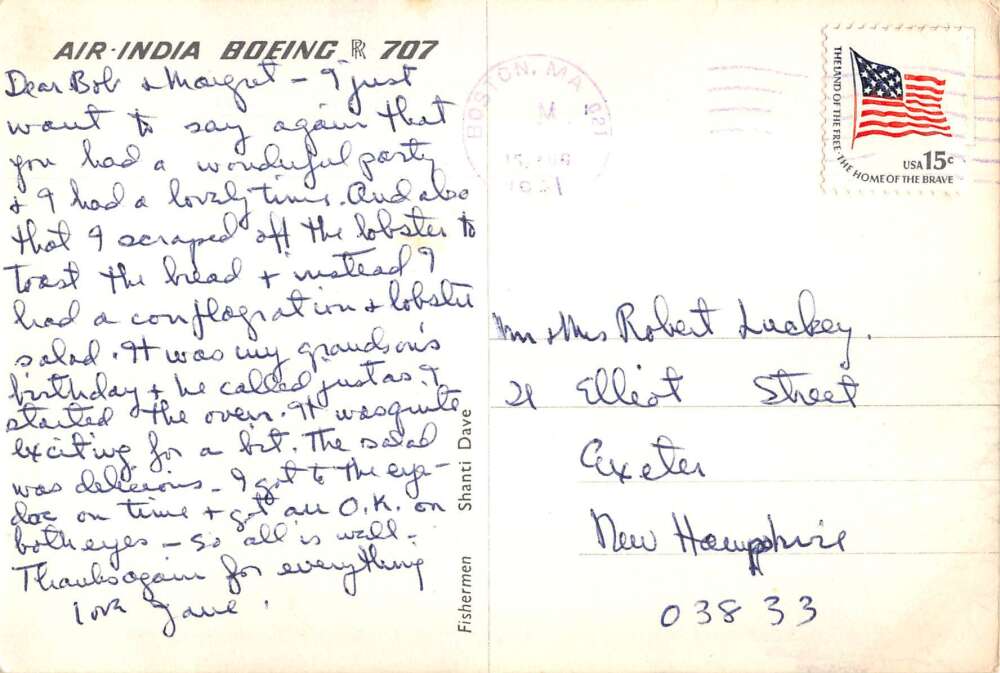 AIR-INDIA BOEING RR 707
Dear Bob & Margret - I just
want to say again that
you had a wonderful party
& I had a lovely time. And also
that I scraped off the lobster to
toast the bread & instead I
had a conflagration & lobster
salad. It was my grandson's
birthday & he called just as I
started the oven. It was quite
exciting for a bit. The salad
was delicious - I got to the eye-
doc on time & got an O.K. on
both eyes - so all is well.
Thanks again for everything
love Jane
Fishermen Shanti Dave
BOSTON, MA 021
M
THE LAND OF THE FREE · THE HOME OF THE BRAVE
USA 15c
Mr & Mrs Robert Luckey.
21 Elliot Street
Exeter
New Hampshire
03833